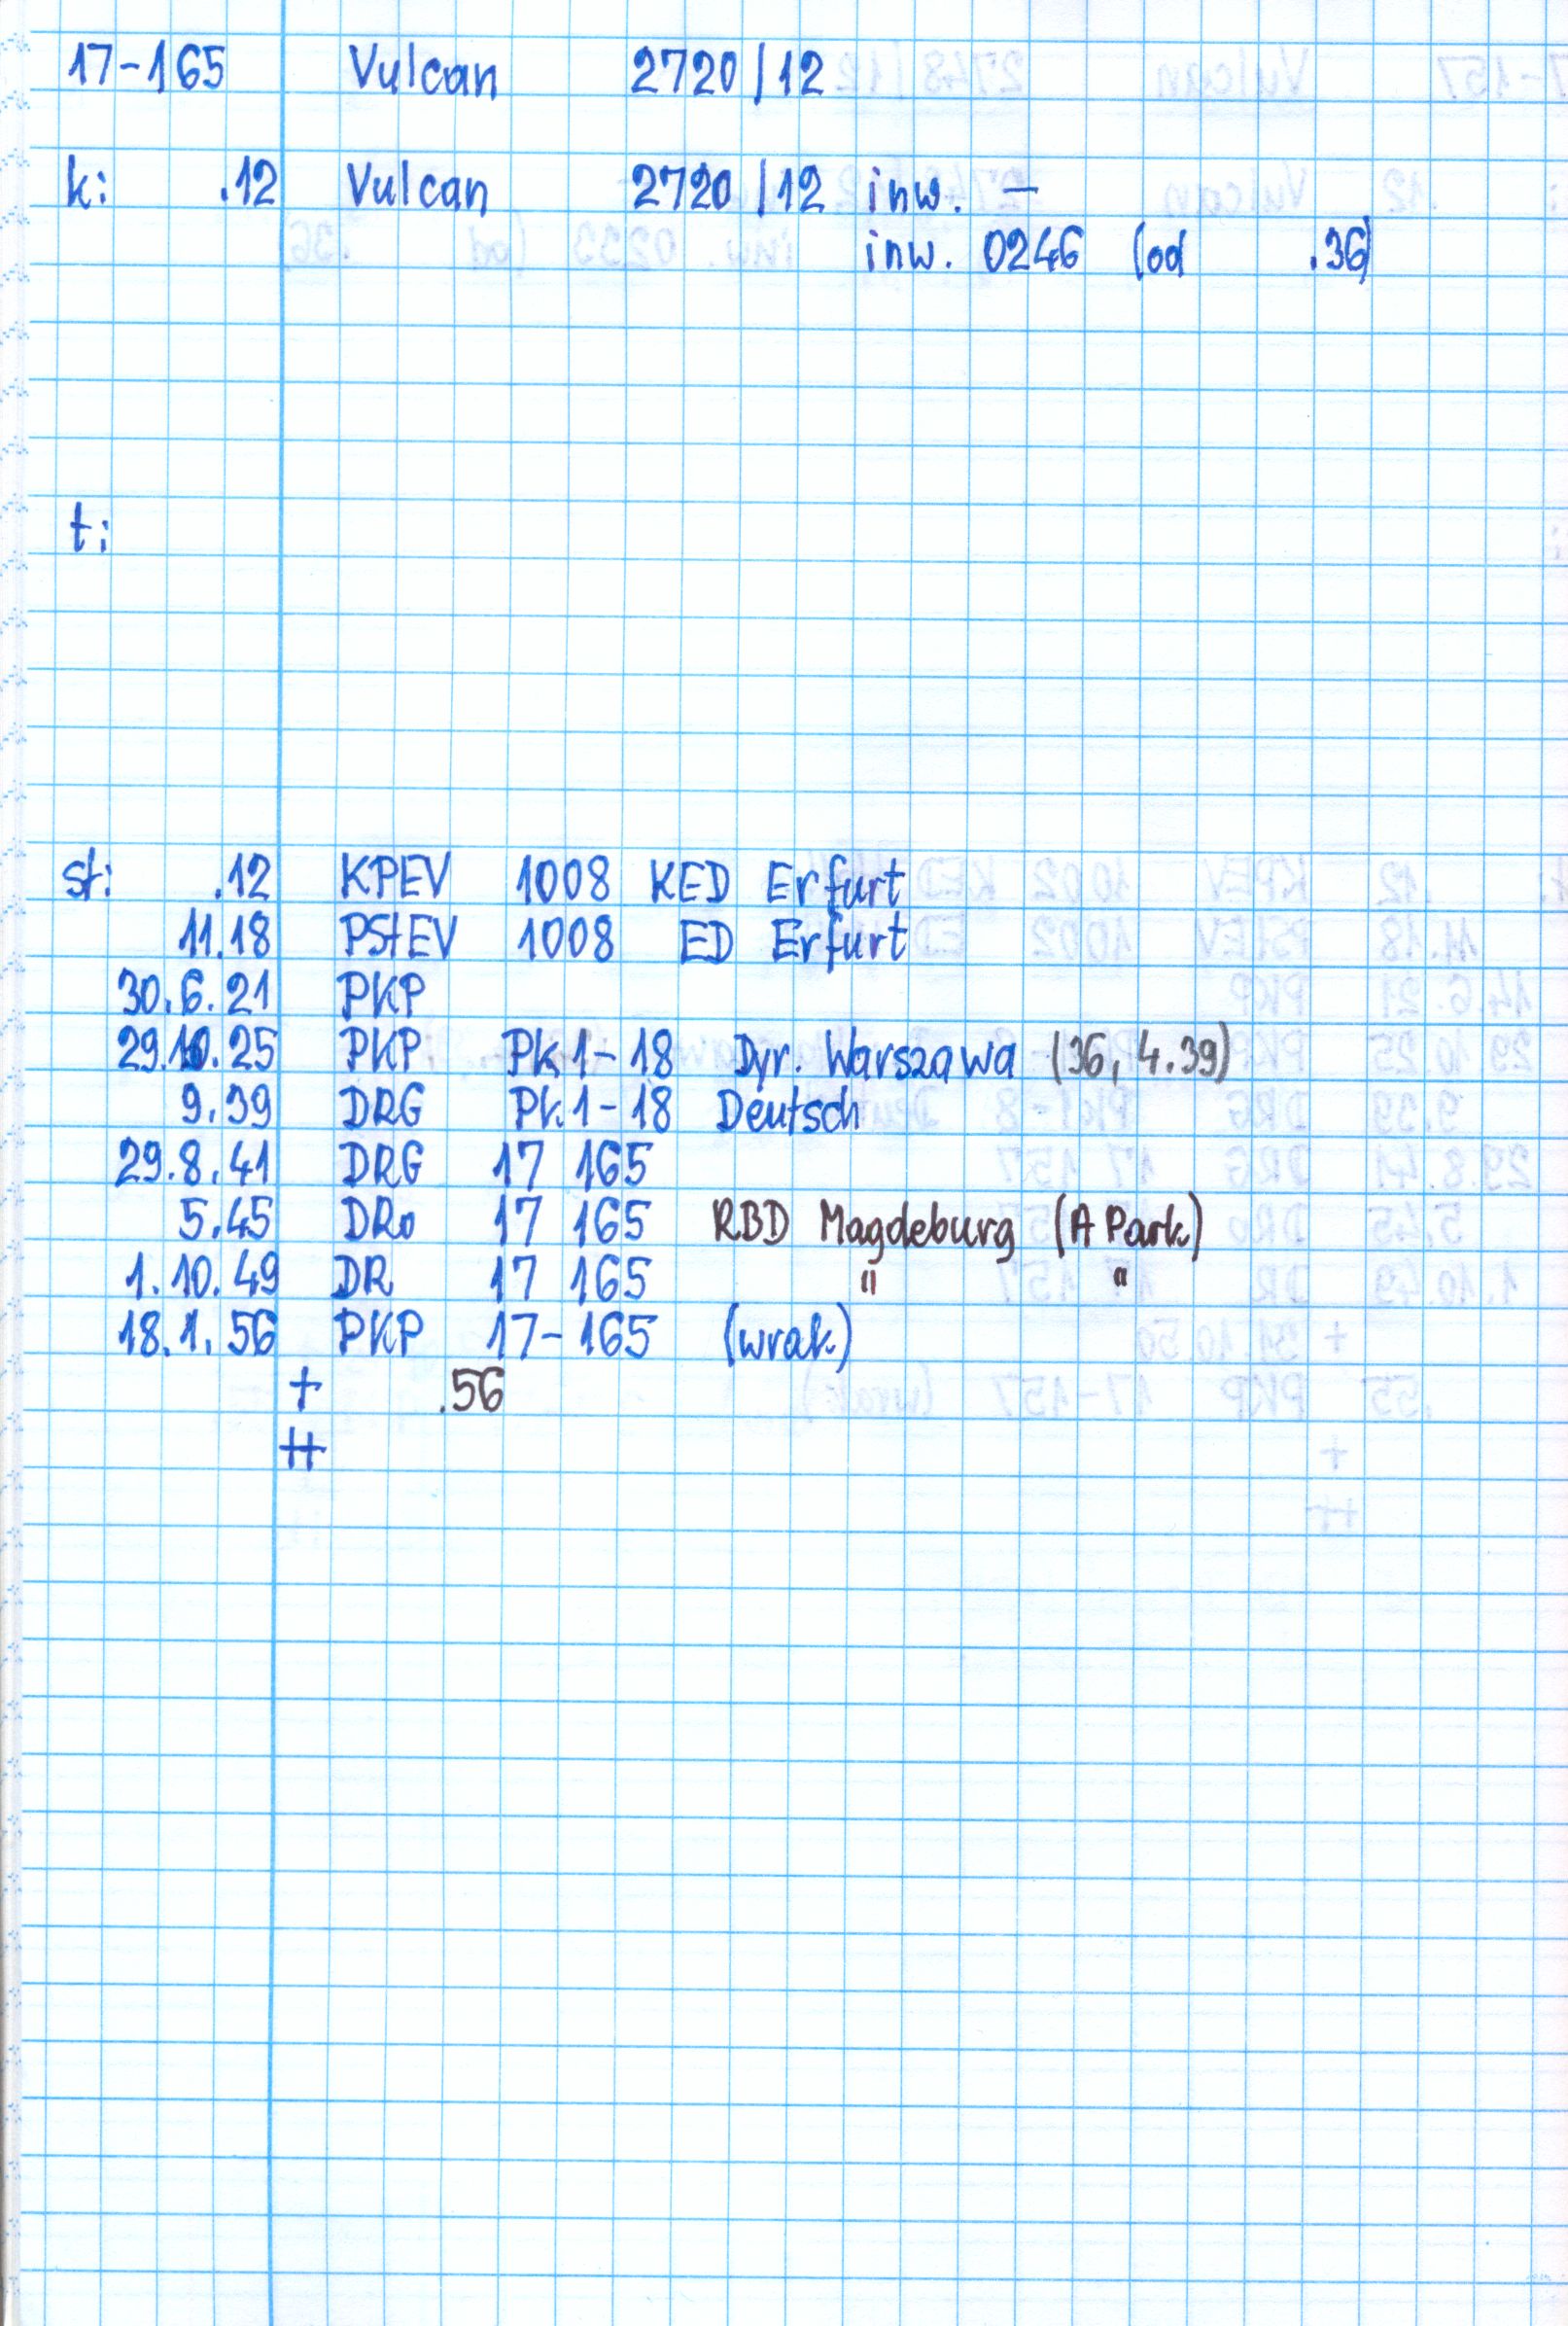 17-165 Vulcan 2720/12
k: .12 Vulcan 2720/12 inw. —
inw. 0246 (od .36)
t:
st: .12 KPEV 1008 KED Erfurt
11.18 PStEV 1008 ED Erfurt
30.6.21 PKP
29.10.25 PKP Pk1-18 Dyr. Warszawa (36, 4.39)
9.39 DRG Pk1-18 Deutsch
29.8.41 DRG 17 165
5.45 DRo 17 165 RBD Magdeburg (A Park)
1.10.49 DR 17 165 " "
18.1.56 PKP 17-165 (wrak)
+ .56
++